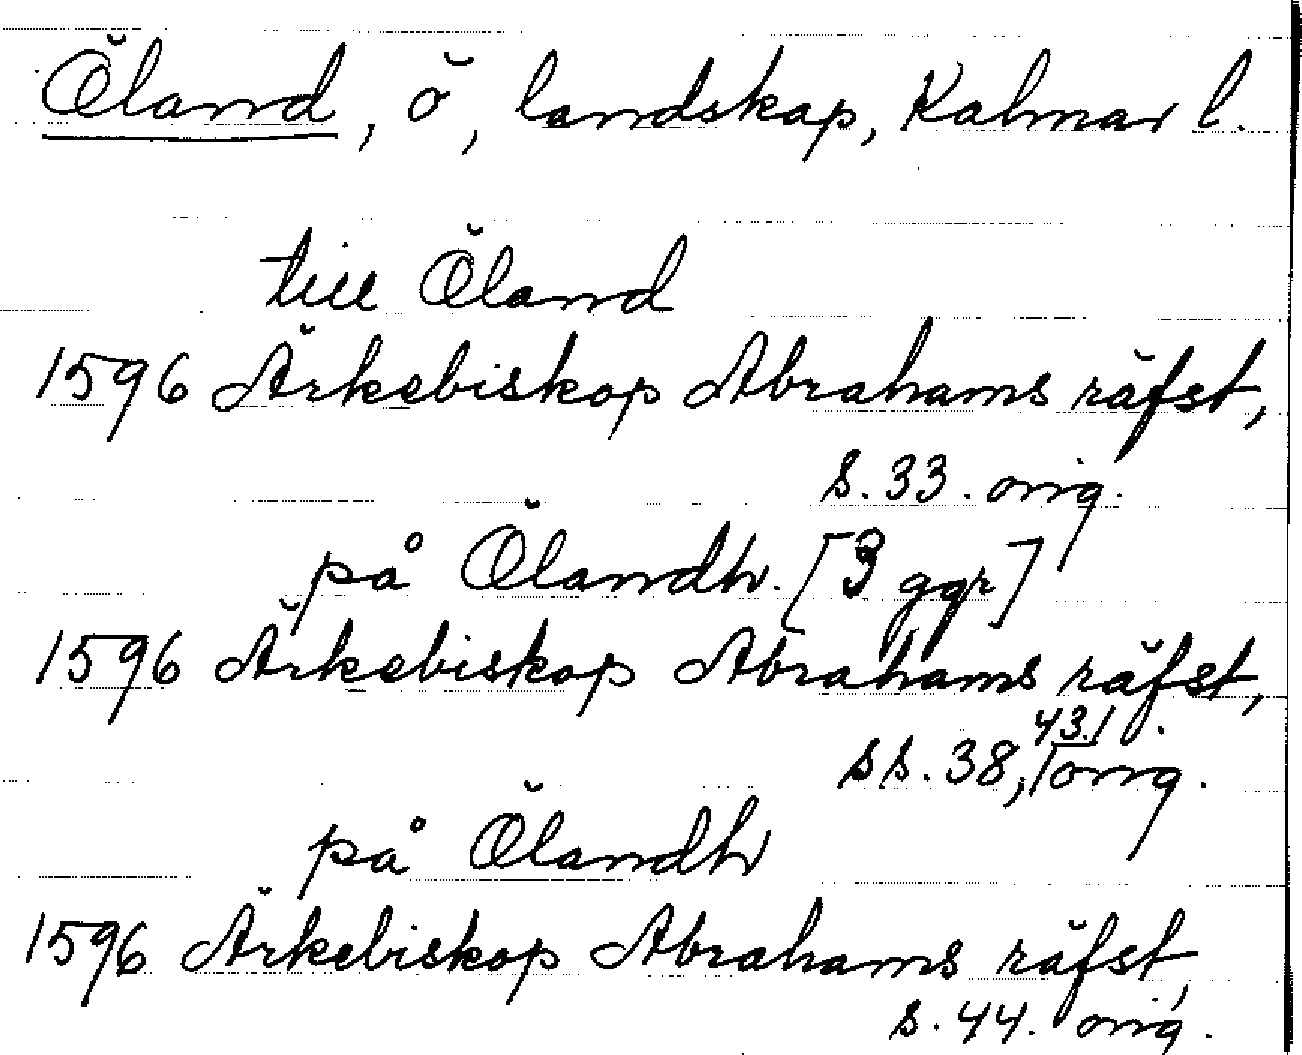 Öland, ö, landskap, Kalmar l.
till Öland
1596 Ärkebiskop Abrahams räfst,
s. 33. orig.
på Ölandh. [3 ggr]
1596 Ärkebiskop Abrahams räfst,
ss. 38, 43. orig.
på Ölandh
1596 Ärkebiskop Abrahams räfst,
s. 44. orig.